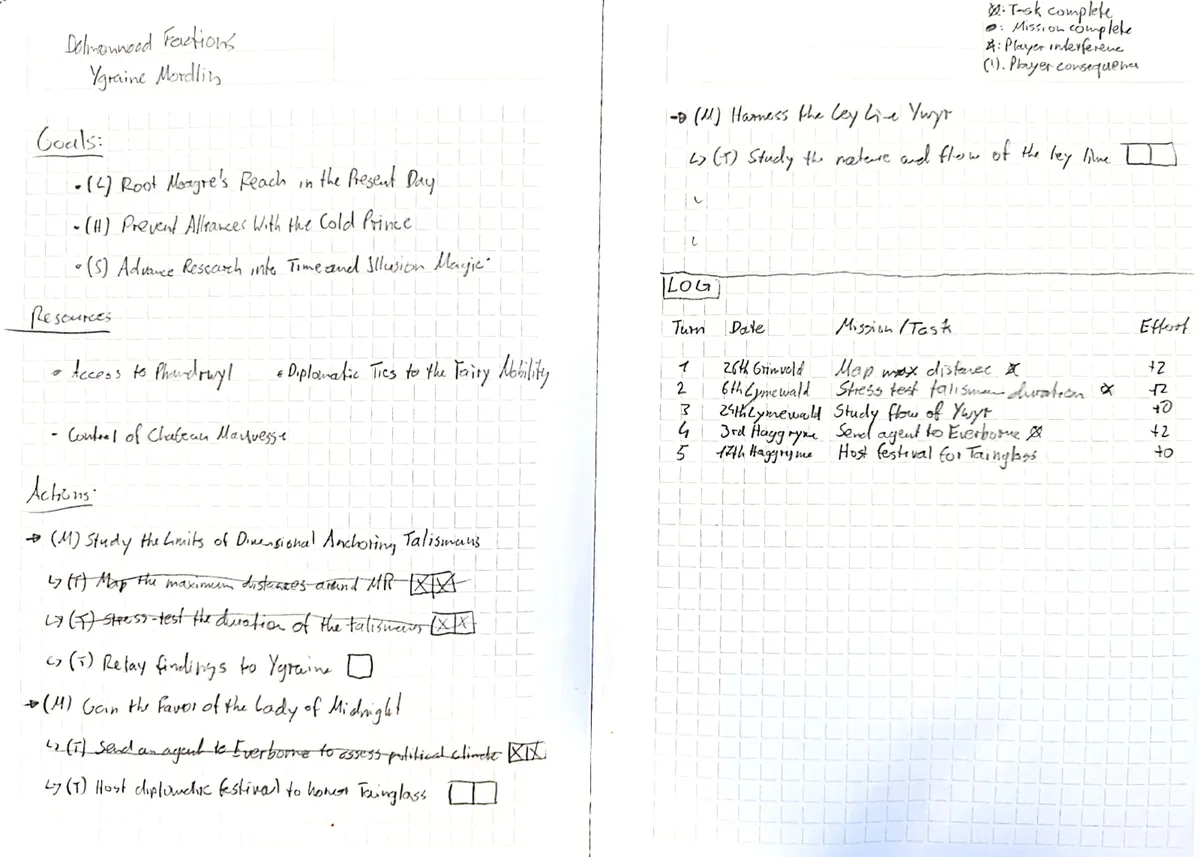 Dolmenwood Factions
Ygraine Mordlin
Goals:
• (L) Root Morgre's Reach in the Present Day
• (M) Prevent Alliances With the Cold Prince
• (S) Advance Research into Time and Illusion Magic
Resources
• Access to Phandrwyl • Diplomatic Ties to the Fairy Nobility
- Control of Chateau Mauvesse
Actions:
→ (M) Study the Limits of Dimensional Anchoring Talismans
↳ (T) Map the maximum distances around MR
↳ (T) Stress-test the duration of the talismans
↳ (T) Relay findings to Ygraine
→ (M) Gain the Favor of the Lady of Midnight
↳ (T) Send an agent to Everborne to assess political climate
↳ (T) Host diplomatic festival to honor Tainglass
: Task complete
: Mission complete
: Player interference
(1). Player consequence
→ (M) Harness the Ley Line Ywyr
↳ (T) Study the nature and flow of the ley line
LOG
Turn Date Mission/Task Effort
1 26th Grimvold Map max distance +2
2 6th Lymewald Stress test talisman duration +2
3 24th Lymewald Study flow of Ywyr +0
4 3rd Haggryme Send agent to Everborne +2
5 17th Haggryme Host festival for Tainglass +0